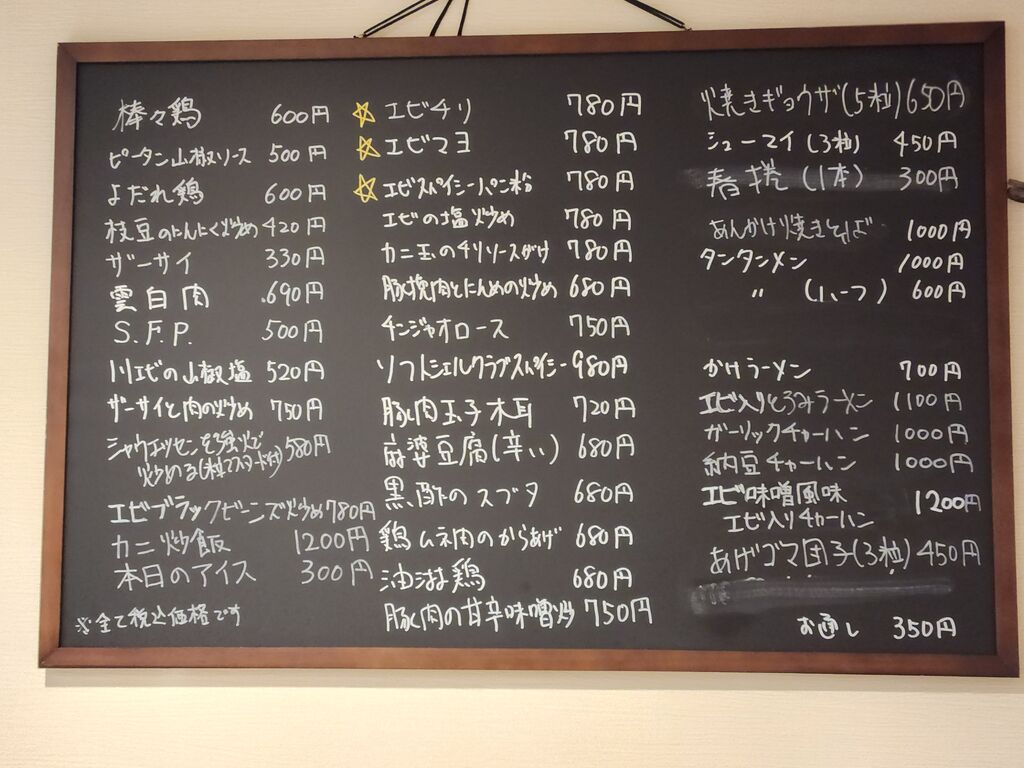 棒々鶏 600円
ピータン山椒ソース 500円
よだれ鶏 600円
枝豆のにんにく炒め 420円
ザーサイ 330円
雲白肉 690円
S.F.P. 500円
川エビの山椒塩 520円
ザーサイと肉の炒め 750円
シャウエッセンを強火で
炒める(粒マスタード付) 580円
エビブラックビーンズ炒め 780円
カニ炒飯 1200円
本日のアイス 300円
※全て税込価格です
☆エビチリ 780円
☆エビマヨ 780円
☆エビスパイシーパン粉 780円
エビの塩炒め 780円
カニ玉のチリソースがけ 780円
豚挽肉とにんめの炒め 680円
チンジャオロース 750円
ソフトシェルクラブスパイシー 980円
豚肉玉子木耳 720円
麻婆豆腐(辛い) 680円
黒酢のスブタ 680円
鶏ムネ肉のからあげ 680円
油淋鶏 680円
豚肉の甘辛味噌炒 750円
焼きギョウザ(5粒) 650円
シューマイ(3粒) 450円
春捲(1本) 300円
あんかけ焼きそば 1000円
タンタンメン 1000円
〃 (ハーフ) 600円
かけラーメン 700円
エビ入りとろみラーメン 1100円
ガーリックチャーハン 1000円
納豆チャーハン 1000円
エビ味噌風味 1200円
エビ入りチャーハン
あげゴマ団子(3粒) 450円
お通し 350円